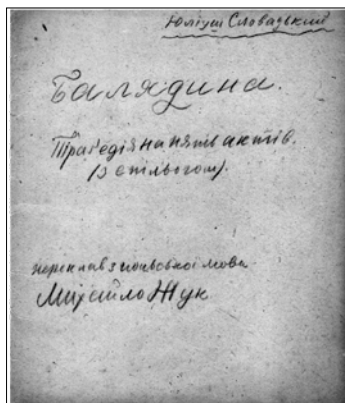 Юліуш Словацький
Балядина.
Траґедія на пять актів.
(з епільоґом).
переклав з польської мови
Михайло Жук